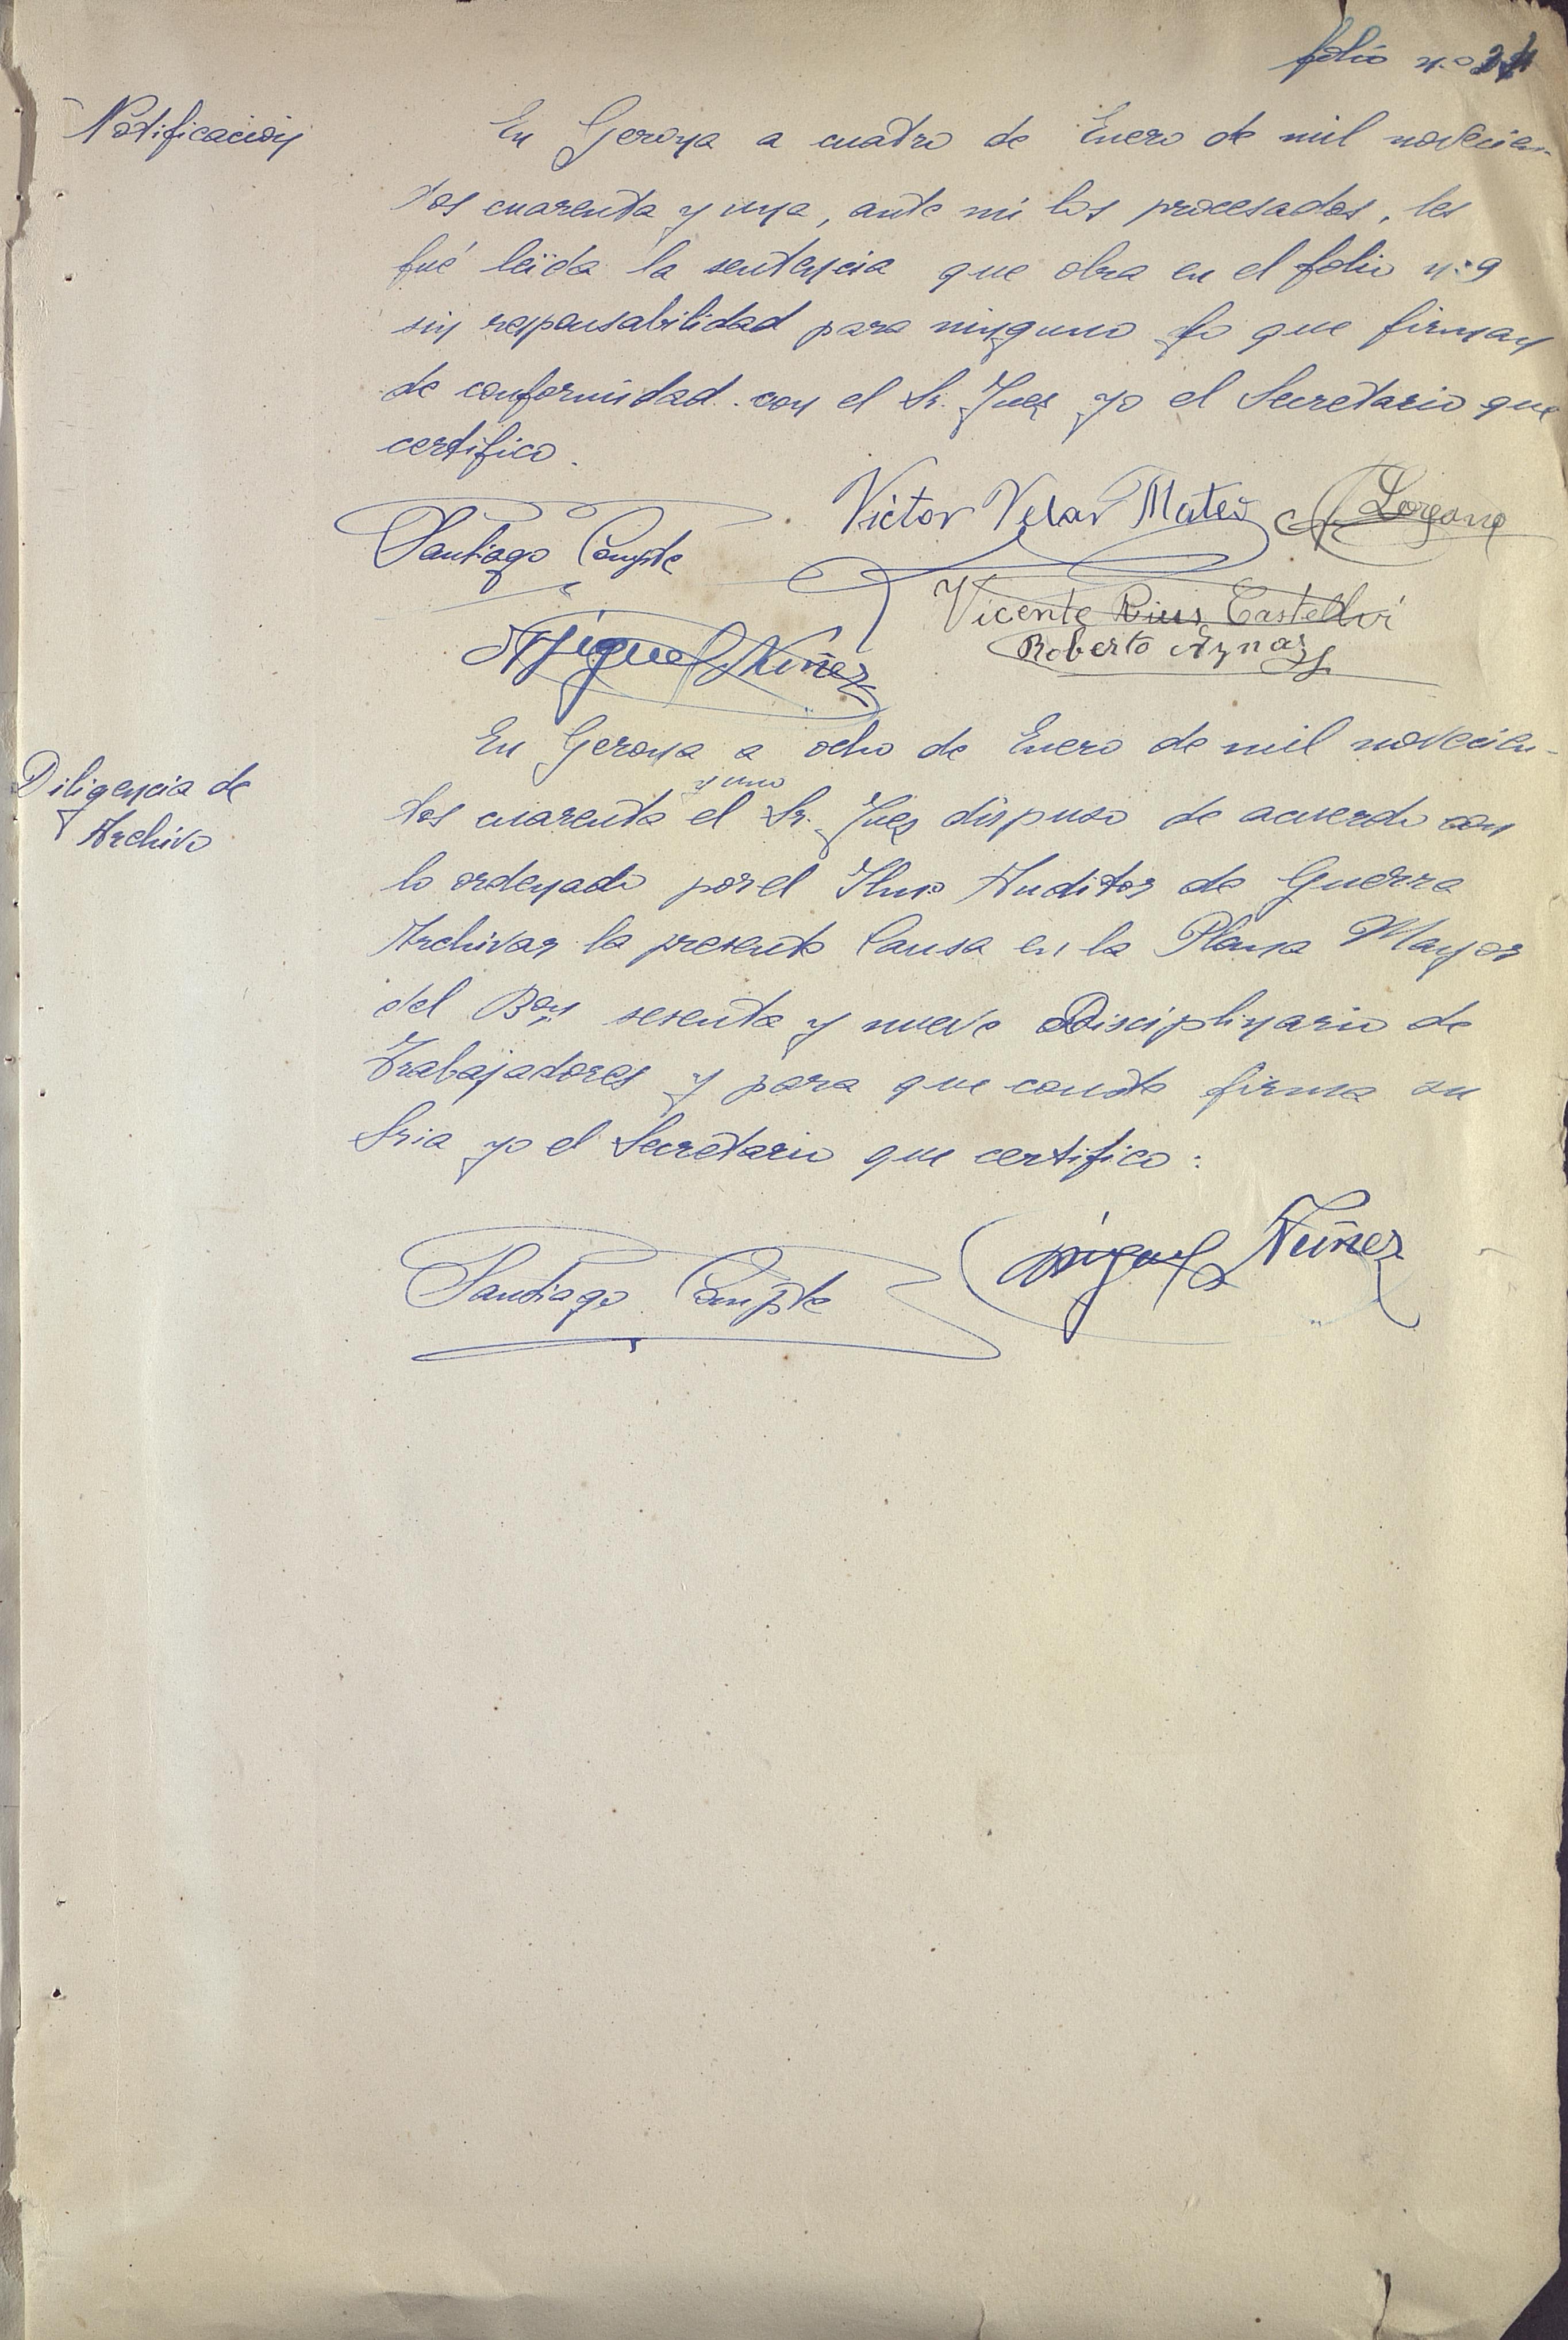 folio n.o
Notificación
En Gerona a cuatro de Enero de mil novecien-
tos cuarenta y una, ante mi los procesados, les
fué leida la sentencia que obra en el folio n.o 9
sin responsabilidad para ninguno lo que firman
de conformidad con el Sr. Juez yo el Secretario que
certifico.
Victor Velar Mateo Lozano
Santiago Compte
Vicente Rius Castellvi
Miguel Nuñez Roberto Aznar
Diligencia de
Archivo
En Gerona a ocho de Enero de mil novecien-
y uno
tos cuarenta el Sr. Juez dispuso de acuerdo con
lo ordenado por el Ilmo Auditor de Guerra
Archivar la presente Causa en la Plana Mayor
del Bon sesenta y nueve Disciplinario de
Trabajadores y para que conste firma su
Sria yo el Secretario que certifico:
Santiago Compte Miguel Nuñez